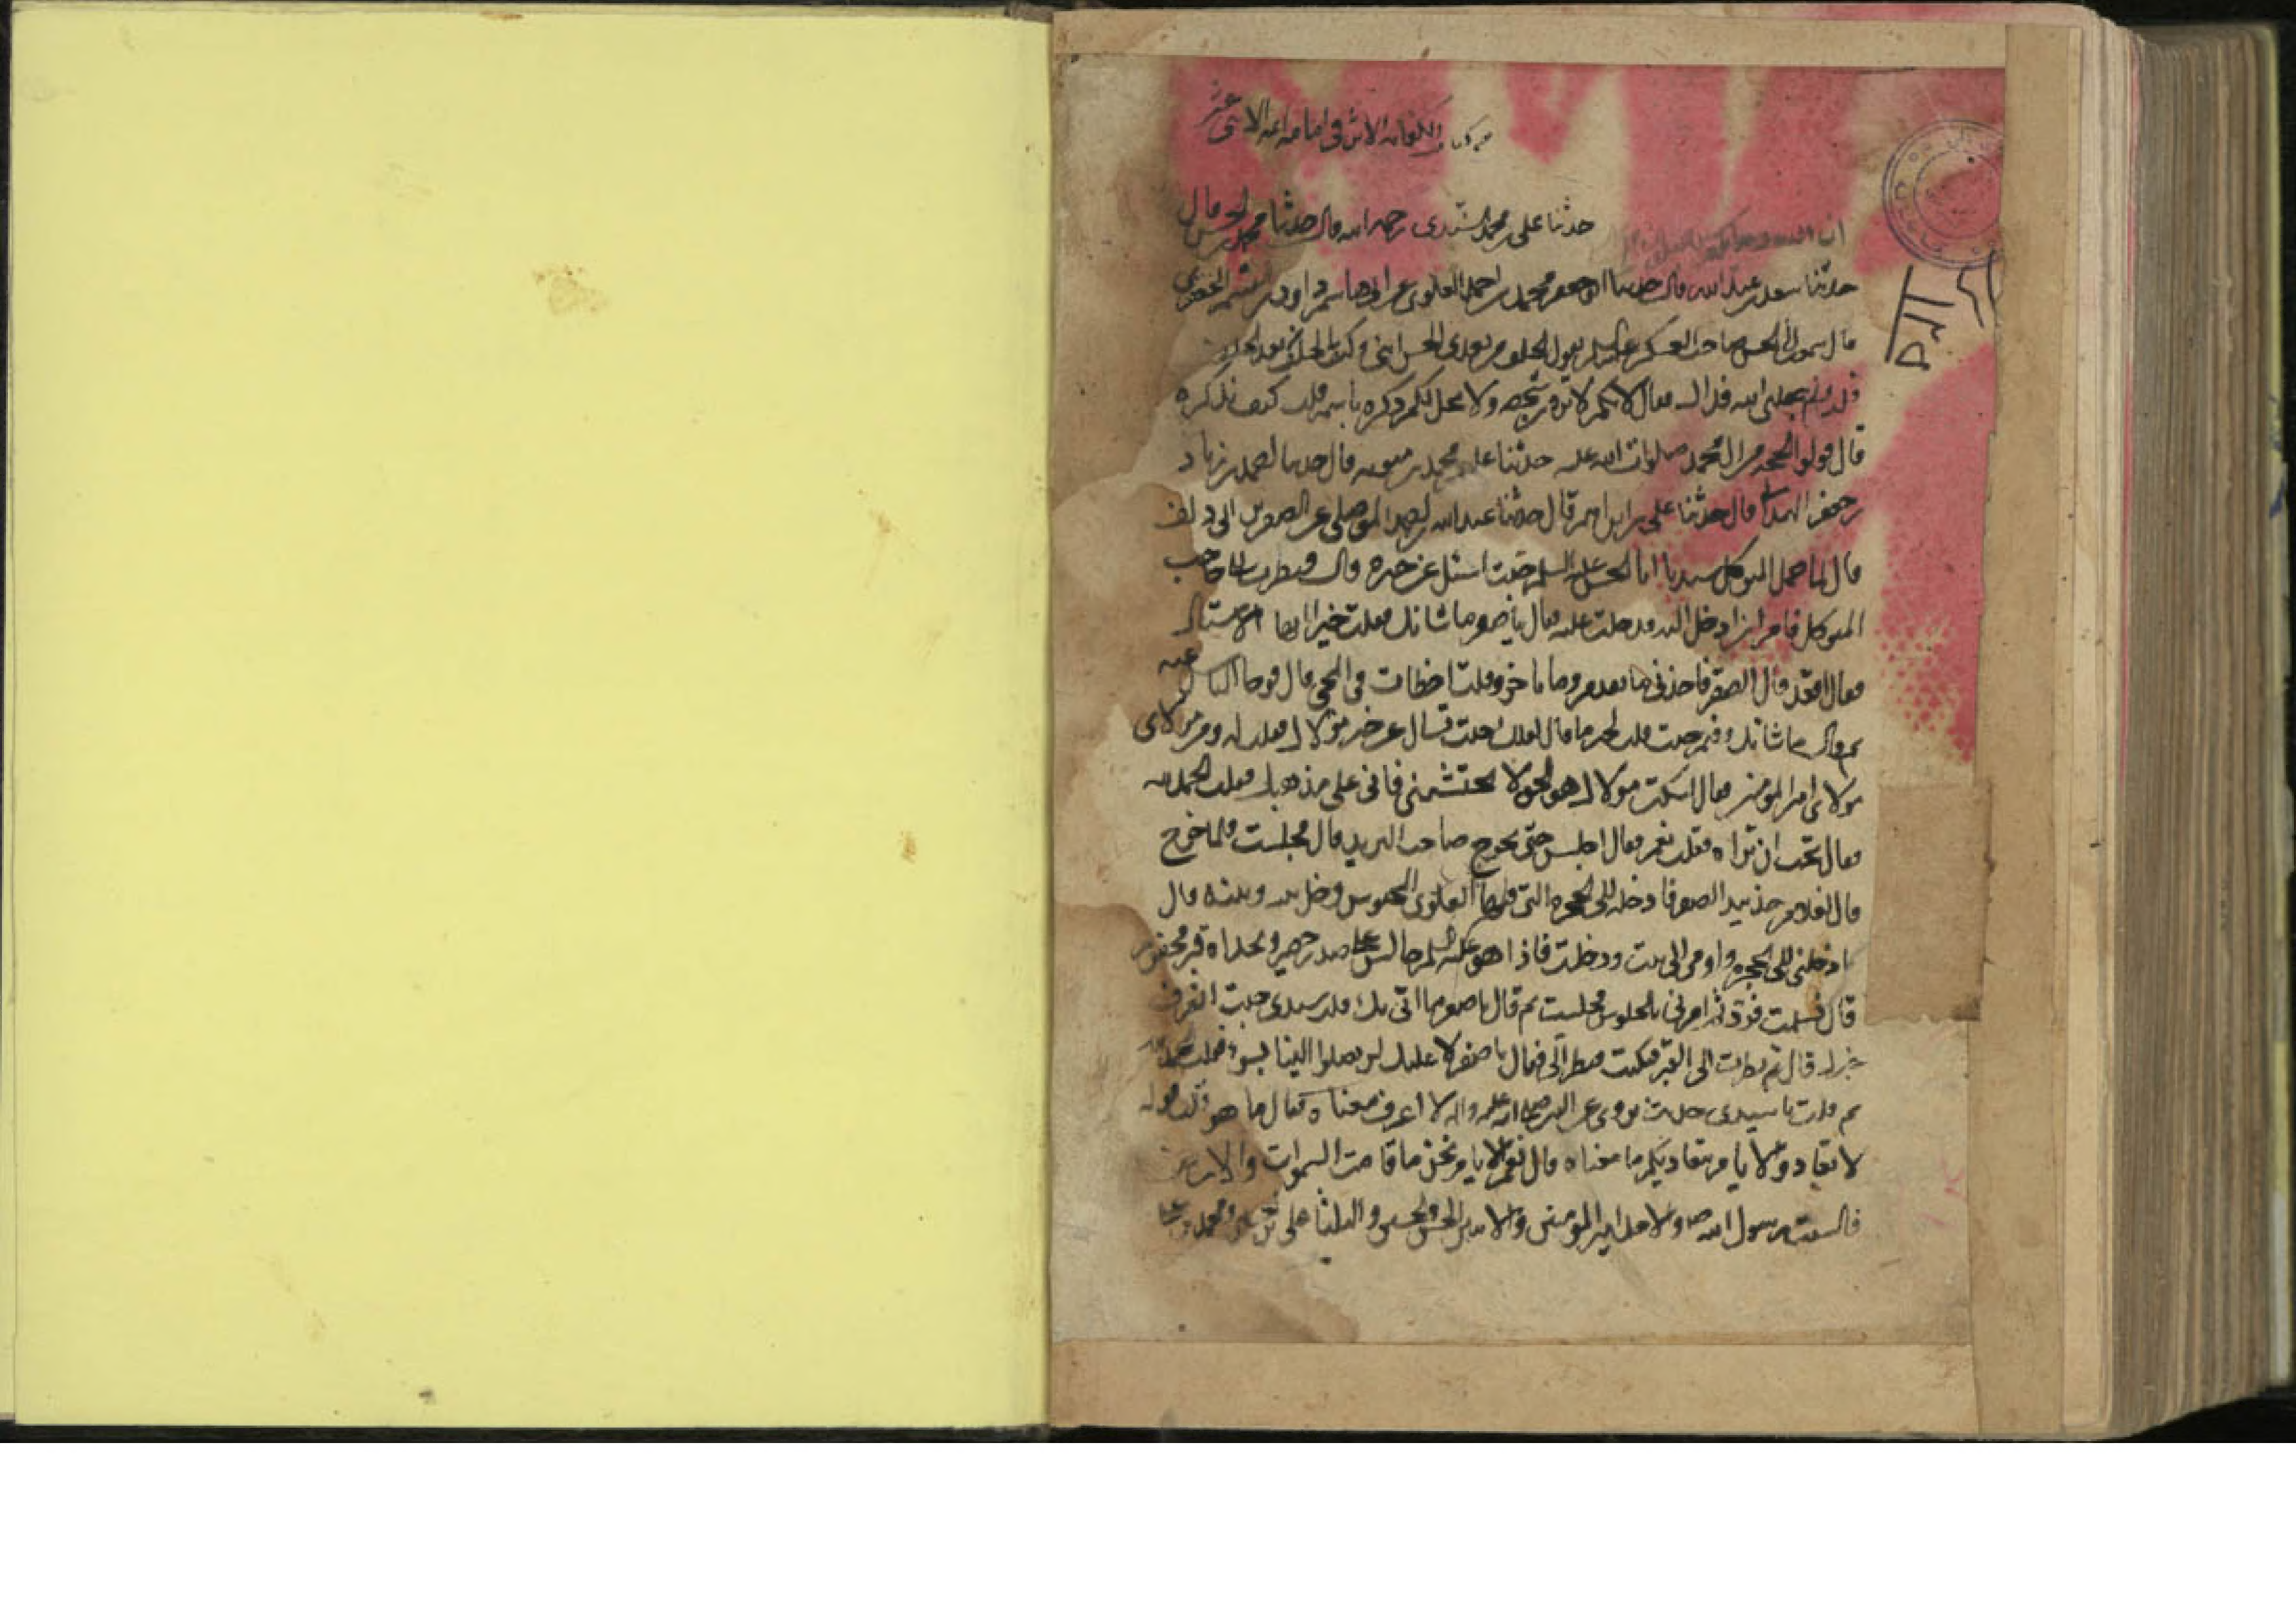 من كتاب الكفاية الاثر في امامة ائمة الاثنى عشر
حدثنا علي بن محمد السندي رحمه الله قال حدثنا محمد بن الحسن قال
حدثنا سعد بن عبد الله قال حدثنا ابو جعفر محمد بن احمد العلوي عن ابي هاشم داود بن القسم الجعفري
قال سمعت ابا الحسن صاحب العسكر عليه السلم يقول الخلف من بعدي الحسن ابني وكيف بالخلف بعد الخلف
قلت ولم جعلني الله فداك فقال لانكم لا ترون شخصه ولا يحل لكم ذكره باسمه قلت كيف نذكره
قال قولوا الحجة من ال محمد صلوات الله عليه حدثنا علي بن محمد بن قال حدثنا احمد بن زياد
بن جعفر الهمداني قال حدثنا علي بن ابراهيم قال حدثنا عبد الله بن احمد الموصلي عن الصقر بن ابي دلف
قال لما حمل المتوكل سيدنا ابا الحسن عليه السلم جئت اسئل عن خبره قال فنظر الي حاجب
المتوكل فامر ان ادخل اليه فدخلت عليه فقال يا صقر ما شانك فقلت خير ايها الاستاد
فقال اقعد قال الصقر فاخذني ما تقدم وما تاخر وقلت اخطات في المجي قال فوحا الناس عنه
ثم قال ما شانك وفيم جئت قلت لخبر ما قال لعلك جئت تسال عن خبر مولاك فقلت له ومن مولاي
مولاي امير المومنين فقال اسكت مولاك هو الحق لا تحتشمني فاني على مذهبك فقلت الحمد لله
فقال تحب ان تراه فقلت نعم فقال اجلس حتى يخرج صاحب البريد قال فجلست فلما خرج
قال لغلام خذ بيد الصقر فادخله الى الحجرة التي فيها العلوي المحبوس وخل بينه وبينه قال
فادخلني الى الحجرة واومى الى بيت ودخلت فاذا هو عليه السلم جالس على صدر حصير وبحذاه قبر محفور
قال فسلمت فرد ثم امرني بالجلوس فجلست ثم قال يا صقر ما اتى بك قلت سيدي جئت اتعرف
خبرك قال ثم نظرت الى القبر فبكيت فنظر الي فقال يا صقر لا عليك لن يصلوا الينا بسوء فقلت الحمد لله
ثم قلت يا سيدي حديث يروى عن النبي صلى الله عليه واله لا اعرف معناه فقال ما هو قلت قوله
لا تعادوا الايام فتعاديكم ما معناه قال نعم الايام نحن ما قامت السموات والارض
فالسبت رسول الله ص والاحد امير المومنين والاثنين الحسن والحسين والثلثا علي بن الحسين ومحمد بن علي